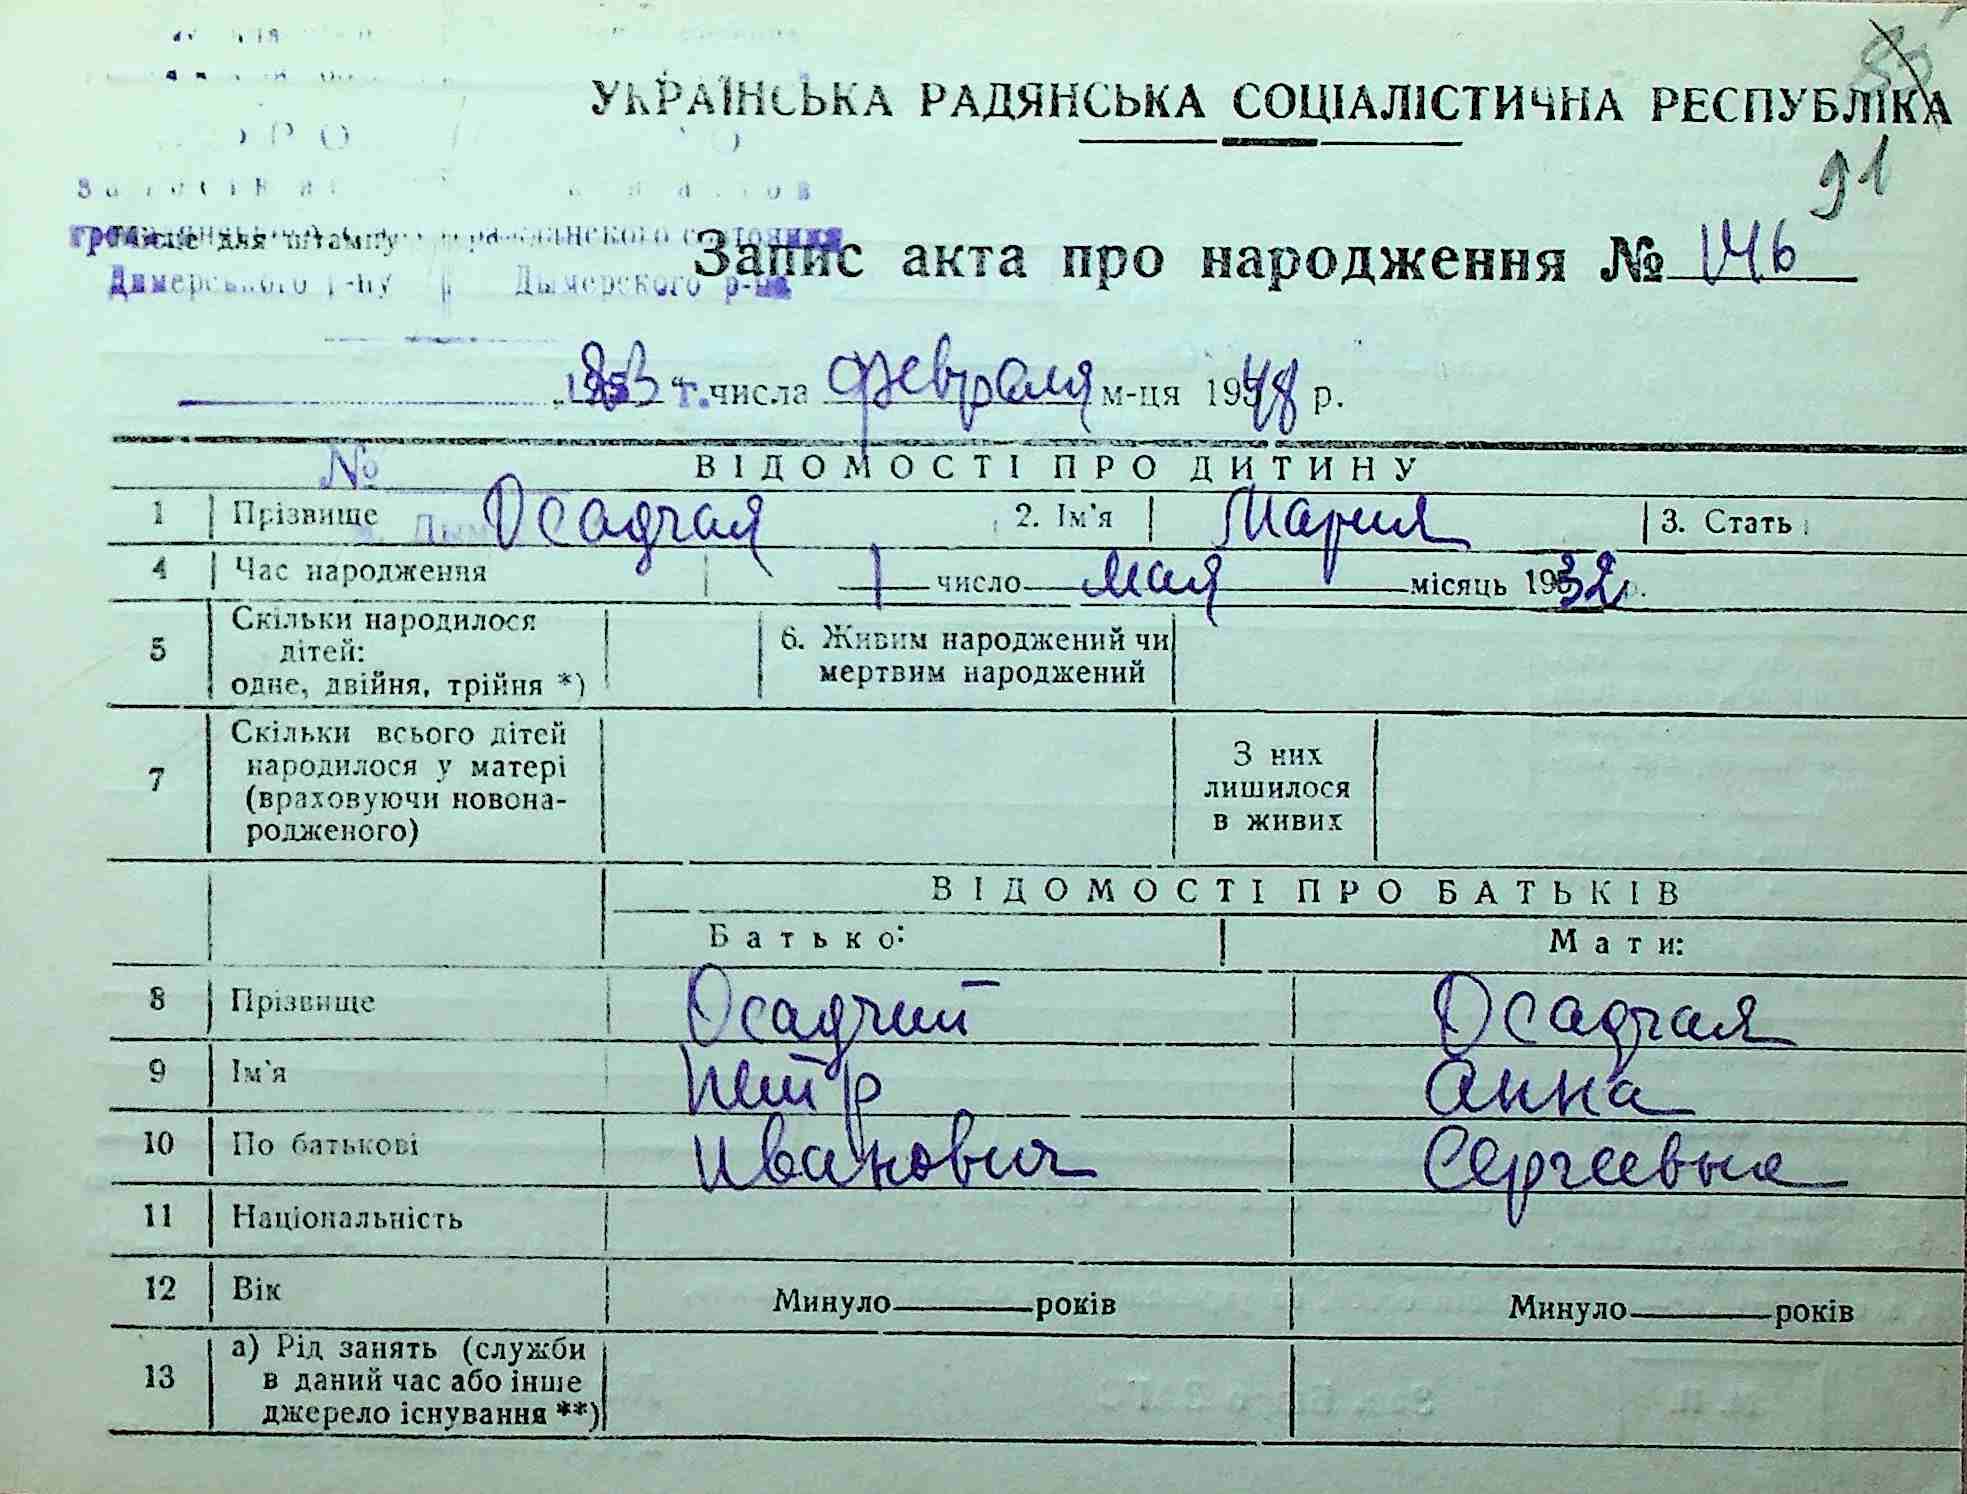 УКРАЇНСЬКА РАДЯНСЬКА СОЦІАЛІСТИЧНА РЕСПУБЛІКА
91
Місце для штампу
гражданского состояния
Запис акта про народження № 146
Димерського р-ну Дымерского р-на
числа февраля м-ця 1948 р.
№
ВІДОМОСТІ ПРО ДИТИНУ
1 Прізвище Осадчая 2. Ім'я Мария 3. Стать
4 Час народження 1 число мая місяць 1932 р.
5 Скільки народилося дітей: одне, двійня, трійня *) 6. Живим народжений чи мертвим народжений
7 Скільки всього дітей народилося у матері (враховуючи новона-родженого) З них лишилося в живих
ВІДОМОСТІ ПРО БАТЬКІВ
Батько: Мати:
8 Прізвище Осадчий Осадчая
9 Ім'я Петр Анна
10 По батькові Иванович Сергеевна
11 Національність
12 Вік Минуло років Минуло років
13 а) Рід занять (служби в даний час або інше джерело існування **)